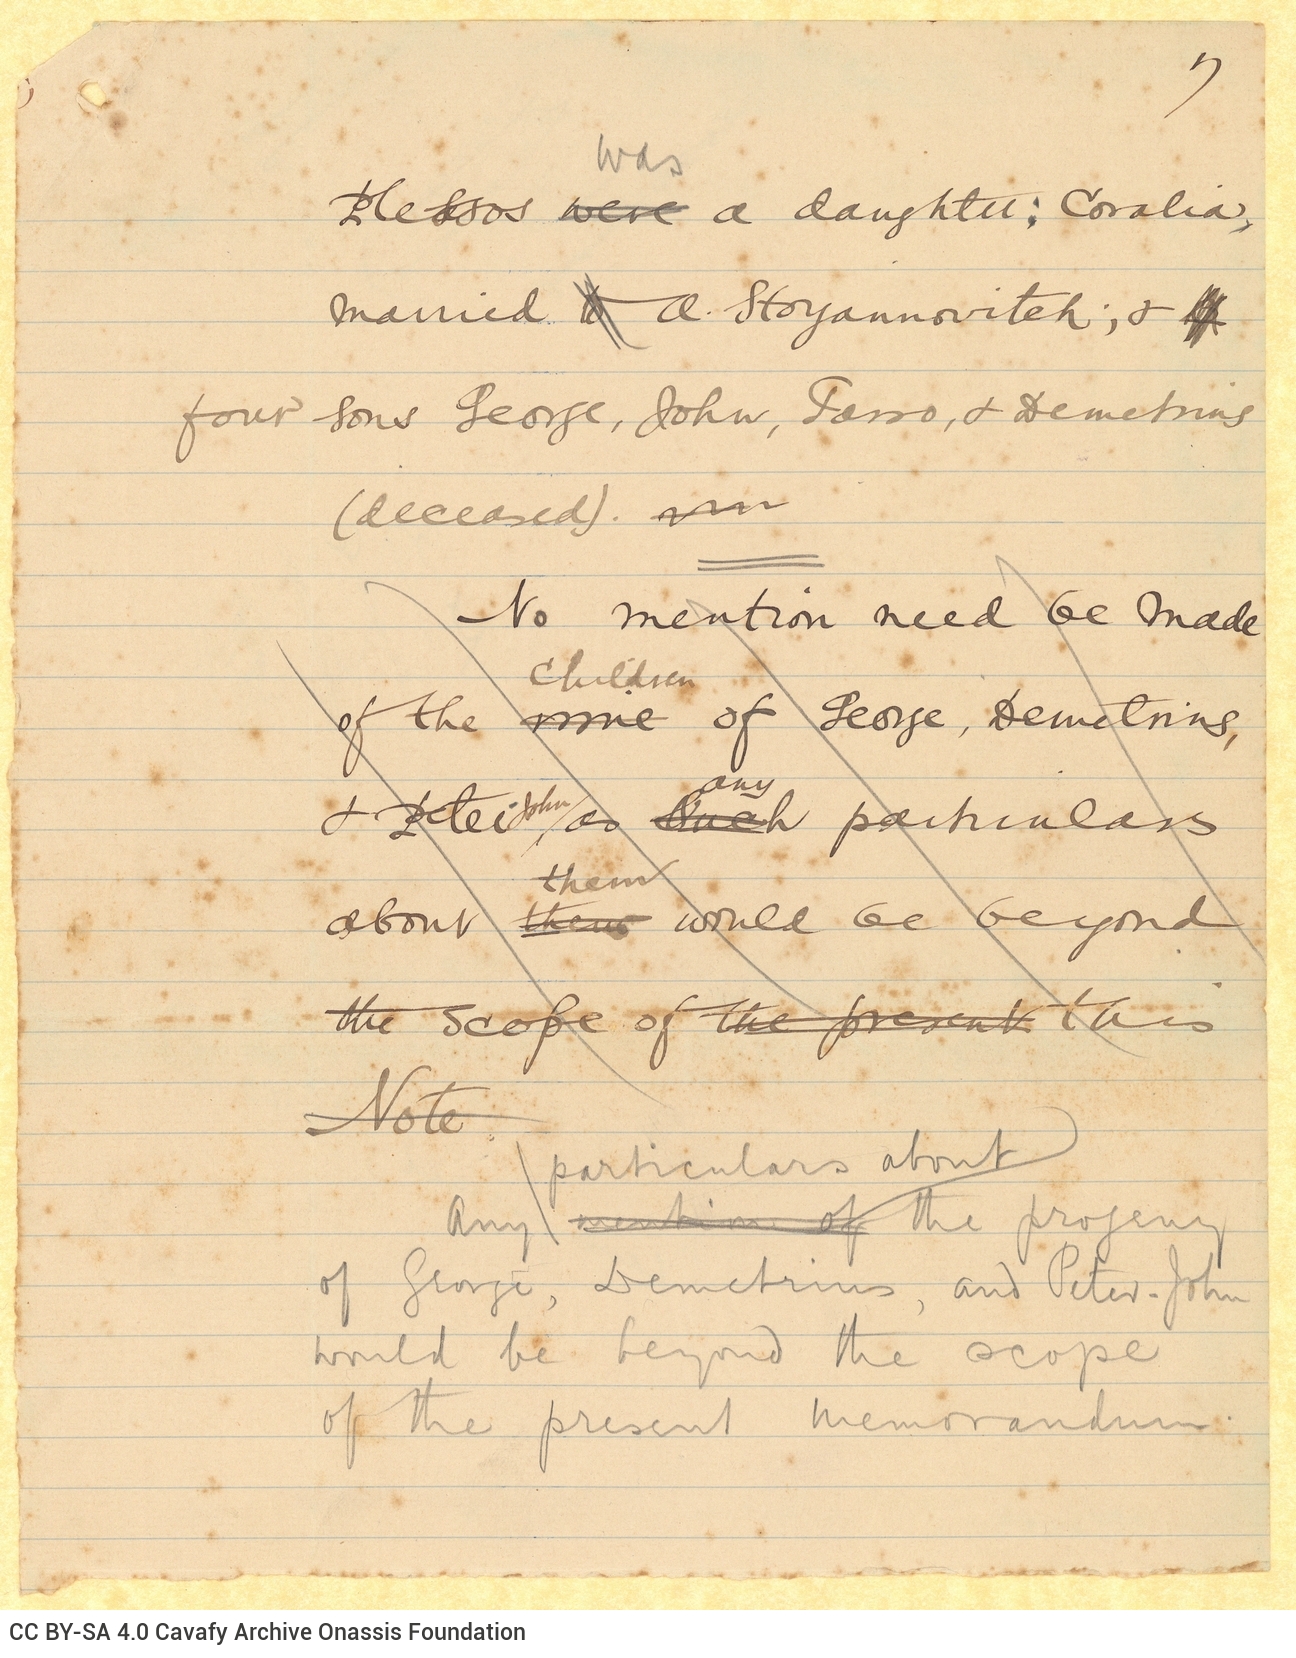 7
was
Plessos were a daughter; Coralia,
married to A. Stoyannovitch; &
four sons George, John, Tasso, & Demetrius
(deceased).
No mention need be made
children
of the of George, Demetrius,
any
& Peter-John as such particulars
them
about them would be beyond
the scope of the present this
Note.
particulars about
Any mention of the progeny
of George, Demetrius, and Peter-John
would be beyond the scope
of the present memorandum.
CC BY-SA 4.0 Cavafy Archive Onassis Foundation